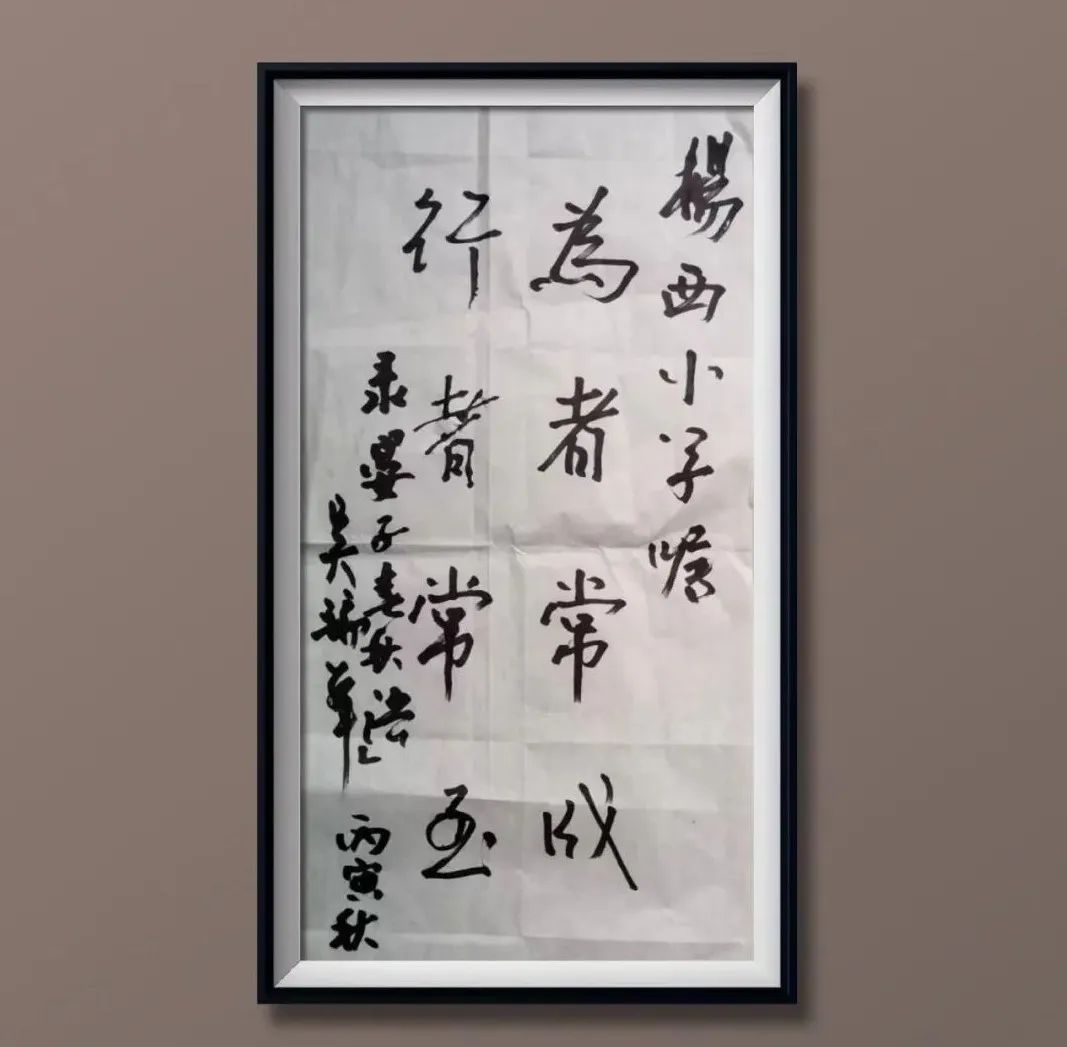 楊西小学
為者常成
行者常至
录晏子春秋
吴華
丙寅秋